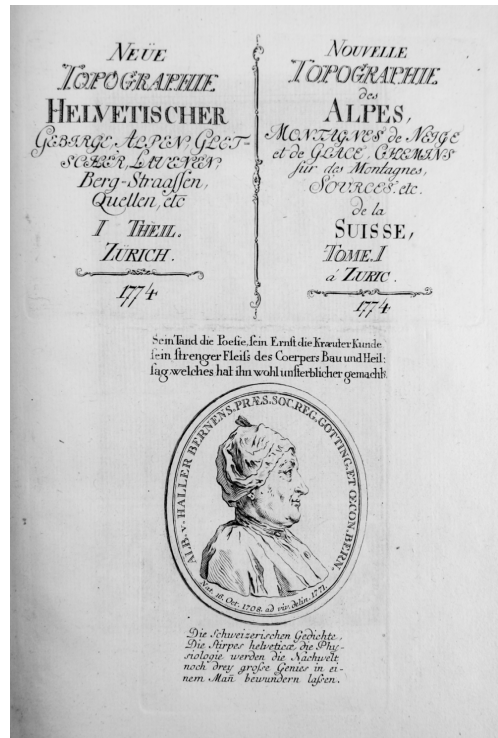 NEÜE
TOPOGRAPHIE
HELVETISCHER
GEBIRGE, ALPEN, GLET-
SCHER, LAUENEN,
Berg-Straassen,
Quellen, etc
I THEIL.
ZÜRICH.
1774
NOUVELLE
TOPOGRAPHIE
des
ALPES,
MONTAGNES de NEIGE
et de GLACE, CHEMINS
sur des Montagnes,
SOURCES. etc.
de la
SUISSE,
TOME.I
a' ZURIC.
1774
Sein Tand die Poesie, sein Ernst die Kræuter Kunde
sein strenger Fleiſs des Coerpers Bau und Heil:
sag, welches hat ihn wohl unsterblicher gemacht?
ALB. v. HALLER BERNENS. PRÆS. SOC. REG. GOTTING. ET ŒCON. BERN.
Nat. 16. Oct. 1708. ad viv. delin. 1771.
Die Schweizerischen Gedichte,
Die Stirpes helveticæ, die Phy-
siologie werden die Nachwelt
noch drey große Genies in ei-
nem Man̄ bewundern laßen.